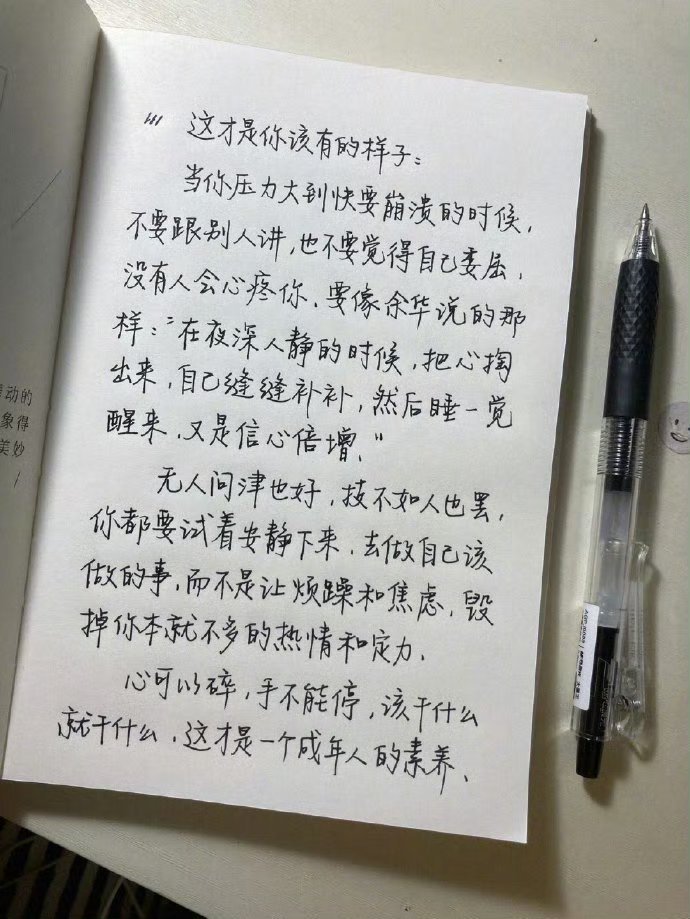 "" 这才是你该有的样子:
当你压力大到快要崩溃的时候,
不要跟别人讲,也不要觉得自己委屈,
没有人会心疼你.要像余华说的那
样:"在夜深人静的时候,把心掏
出来,自己缝缝补补,然后睡一觉
醒来,又是信心倍增."
无人问津也好,技不如人也罢,
你都要试着安静下来.去做自己该
做的事,而不是让烦躁和焦虑,毁
掉你本就不多的热情和定力.
心可以碎,手不能停,该干什么
就干什么,这才是一个成年人的素养.
动的
象得
美妙